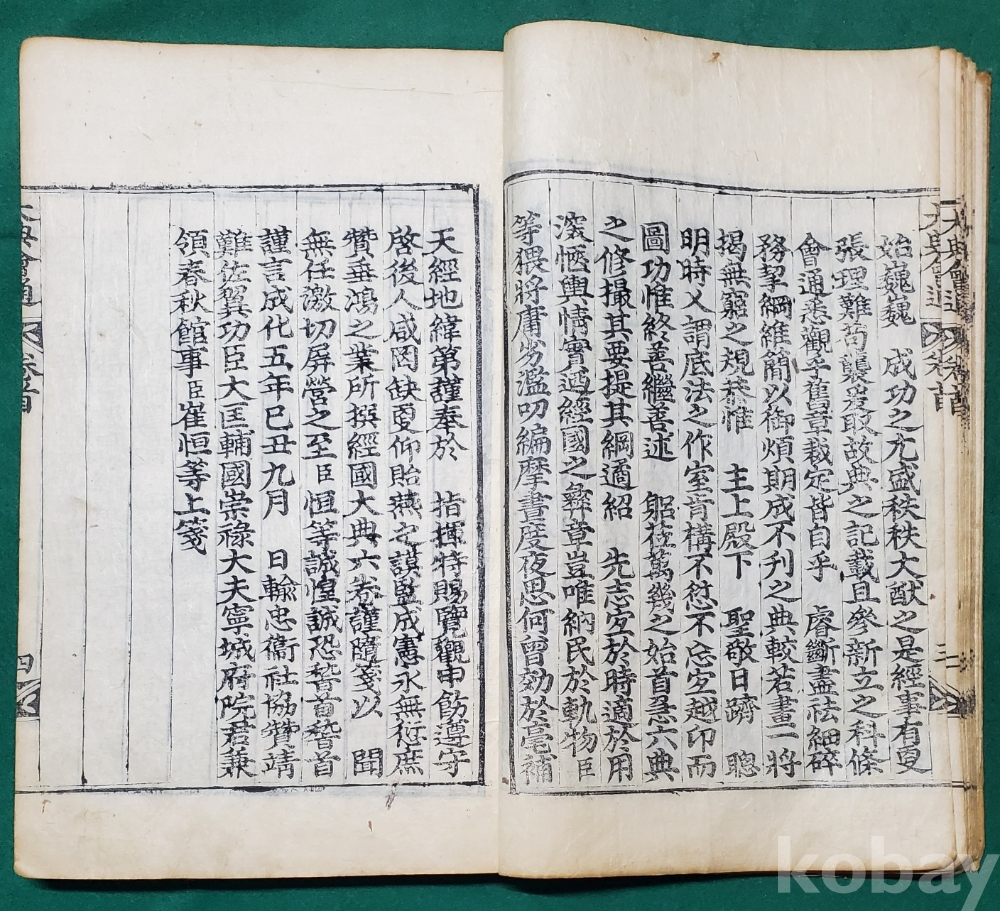 始巍巍 成功之尤盛秩秩大猷之是經事有更
張理難苟襲爰取故典之記載且參新立之科條
會通悉觀乎舊章裁定皆自乎 睿斷盡祛細碎
務挈綱維簡以御煩期成不刊之典較若畫一將
揭無窮之規恭惟 主上殿下 聖敬日躋 聰
明時乂謂底法之作室肯構不愆不忘宜越印而
圖功惟終善繼善述 躬莅萬幾之始首急六典
之修撮其要提其綱遹紹 先志宜於時適於用
深愜輿情實迺經國之彝章豈唯納民於軌物臣
等猥將庸劣濫叨編摩晝度夜思何曾効於毫補
天經地緯第謹奉於 指揮特賜覽觀申飭遵守
啓後人咸罔缺更仰貽燕之謨監成憲永無愆庶
贊垂鴻之業所撰經國大典六卷謹隨箋以 聞
無任激切屏營之至臣恒等誠惶誠恐稽首稽首
謹言成化五年己丑九月 日輸忠衛社協贊靖
難佐翼功臣大匡輔國崇祿大夫寧城府院君兼
領春秋館事臣崔恒等上箋
大典會通 卷首
四
大典會通 卷首
kobay